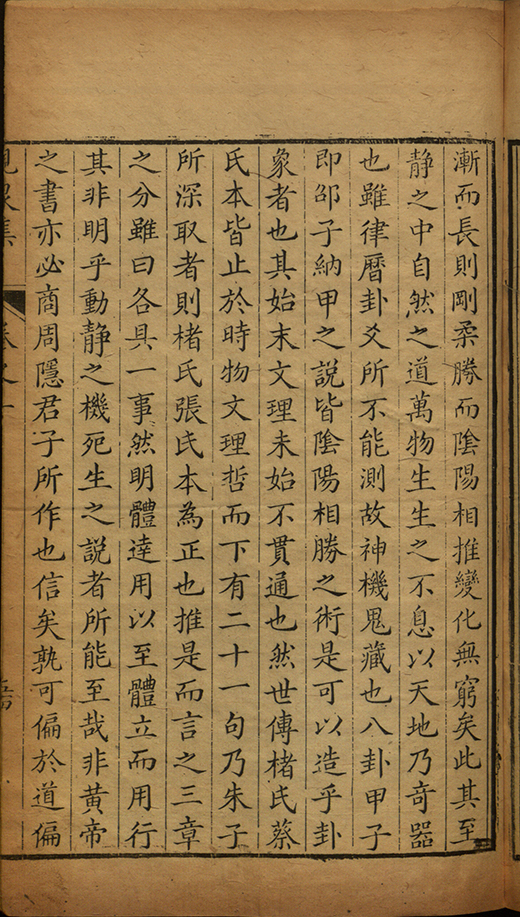 漸而長則剛柔勝而陰陽相推變化無窮矣此其至
静之中自然之道萬物生生之不息以天地乃奇器
也雖律曆卦爻所不能測故神機鬼藏也八卦甲子
即邵子納甲之説皆隂陽相勝之術是可以造乎卦
象者也其始末文理未始不貫通也然世傳楮氏蔡
氏本皆止於時物文理哲而下有二十一句乃朱子
所深取者則楮氏張氏本為正也推是而言之三章
之分雖曰各具一事然明體達用以至體立而用行
其非明乎動靜之機死生之説者所能至哉非黄帝
之書亦必商周隱君子所作也信矣孰可偏於道偏